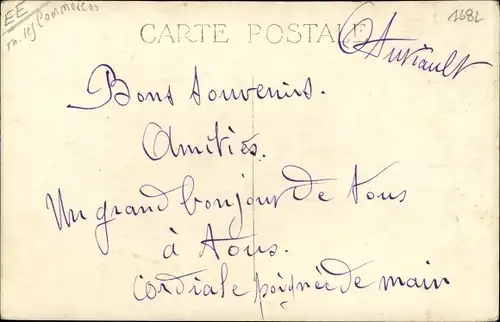 EE
Th. les Commerces
CARTE POSTALE
1682
Auriault
Bons souvenirs.
Amitiés.
Un grand bonjour de tous
à tous.
Cordiale poignée de main